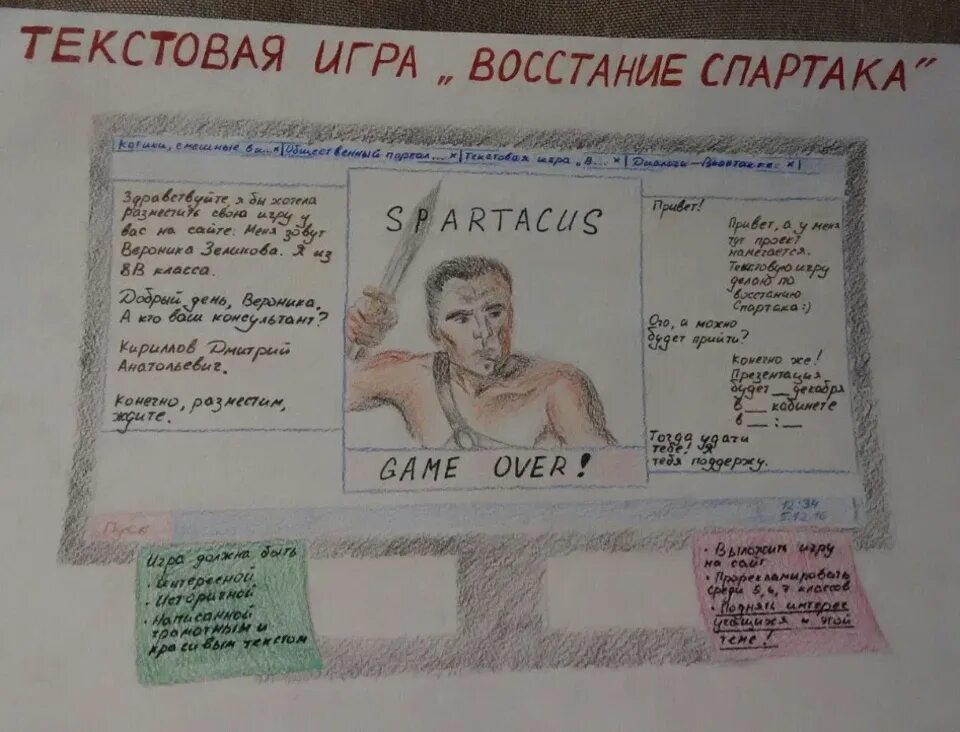 ТЕКСТОВАЯ ИГРА „ВОССТАНИЕ СПАРТАКА"
Котики, смешные ви...×|Общественный портал...×|Текстовая игра „В... ×| Диалоги-Вконтакте. ×|
Здравствуйте, я бы хотела
разместить свою игру у
вас на сайте. Меня зовут
Вероника Зеликова. Я из
8В класса.
Добрый день, Вероника.
А кто ваш консультант?
Кириллов Дмитрий
Анатольевич.
Конечно, разместим,
ждите.
SPARTACUS
GAME OVER!
Привет!
Привет, а у меня
тут проект
намечается.
Текстовую игру
делаю по
восстанию
Спартака:)
Ого, а можно
будет прийти?
Конечно же!
Презентация
будет __ декабря
в __ кабинете
в __:__
Тогда удачи
тебе! Я
тебя поддержу.
Пуск
12:34
5.12.16
Игра должна быть
· Интересной
· Историчной
· Написанной
грамотным и
красивым текстом
· Выложить игру
на сайт
· Прорекламировать
среди 5,6,7 классов
· Поднять интерес
учащихся к этой
теме!